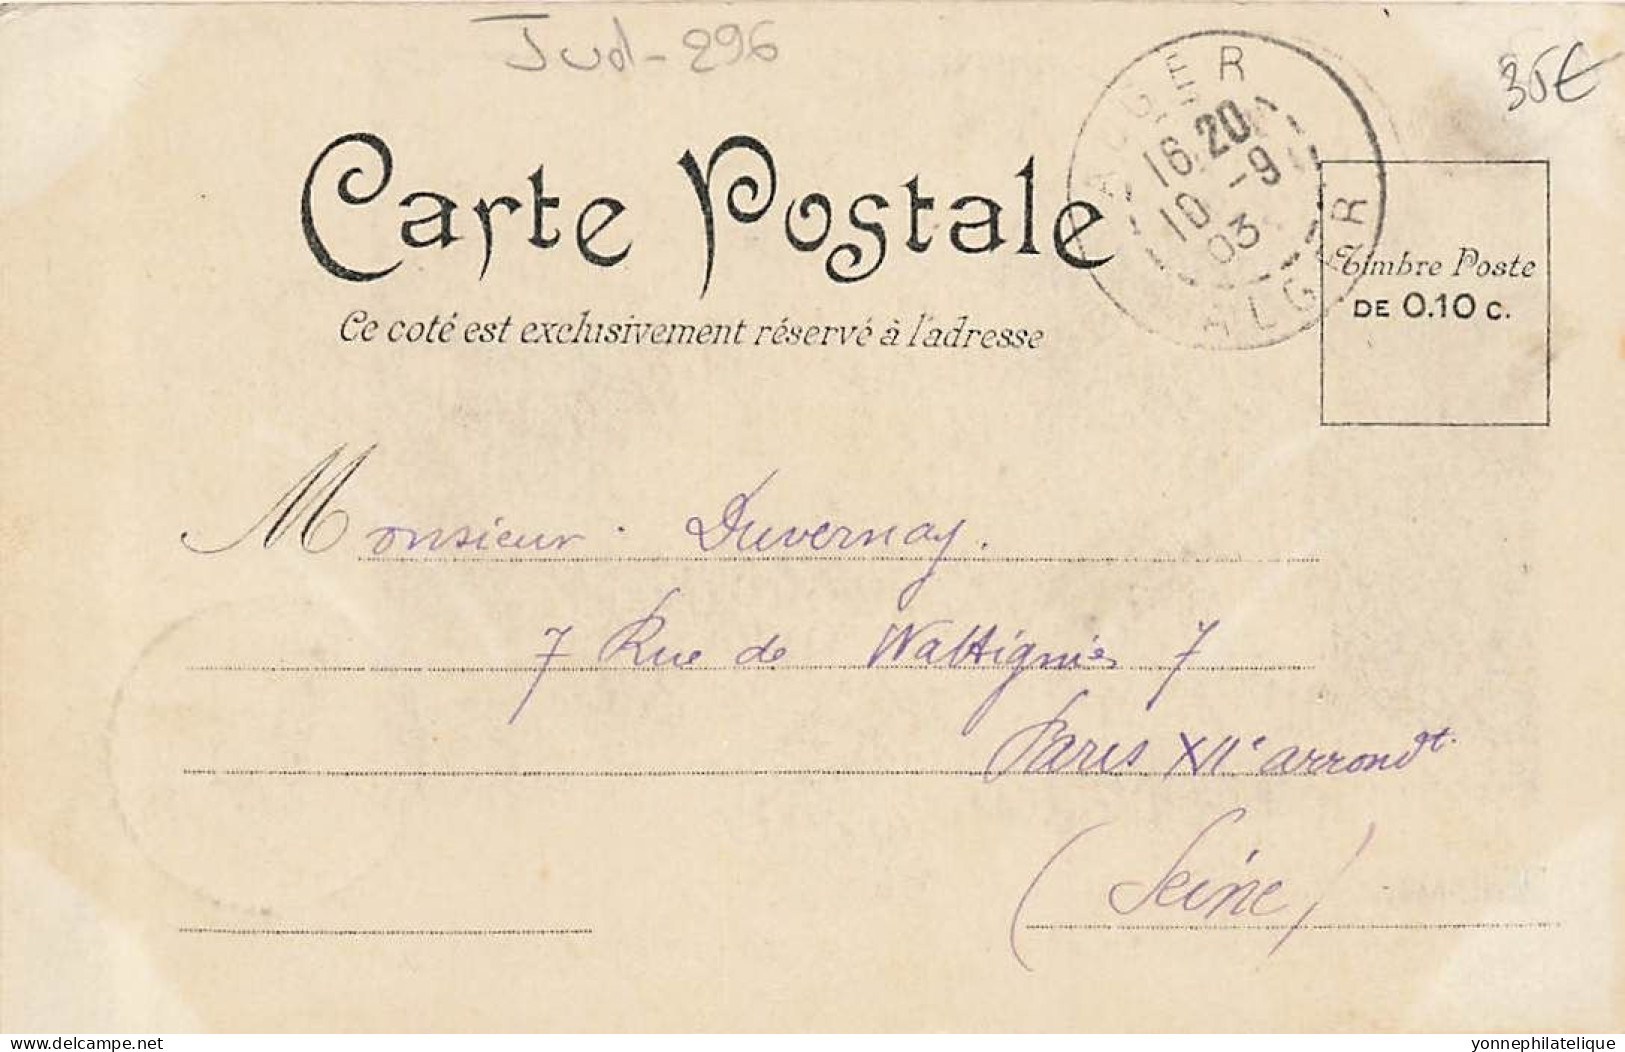 Jud-296
35€
ALGER
16.20
10 -9
03
ALGER
Carte Postale
Ce coté est exclusivement réservé à l'adresse
Timbre Poste
DE 0.10 C.
Monsieur. Duvernay.
7 Rue de Wattignies 7
Paris XIIe arrondt.
(Seine)
delcampe.net
yonnephilatelique